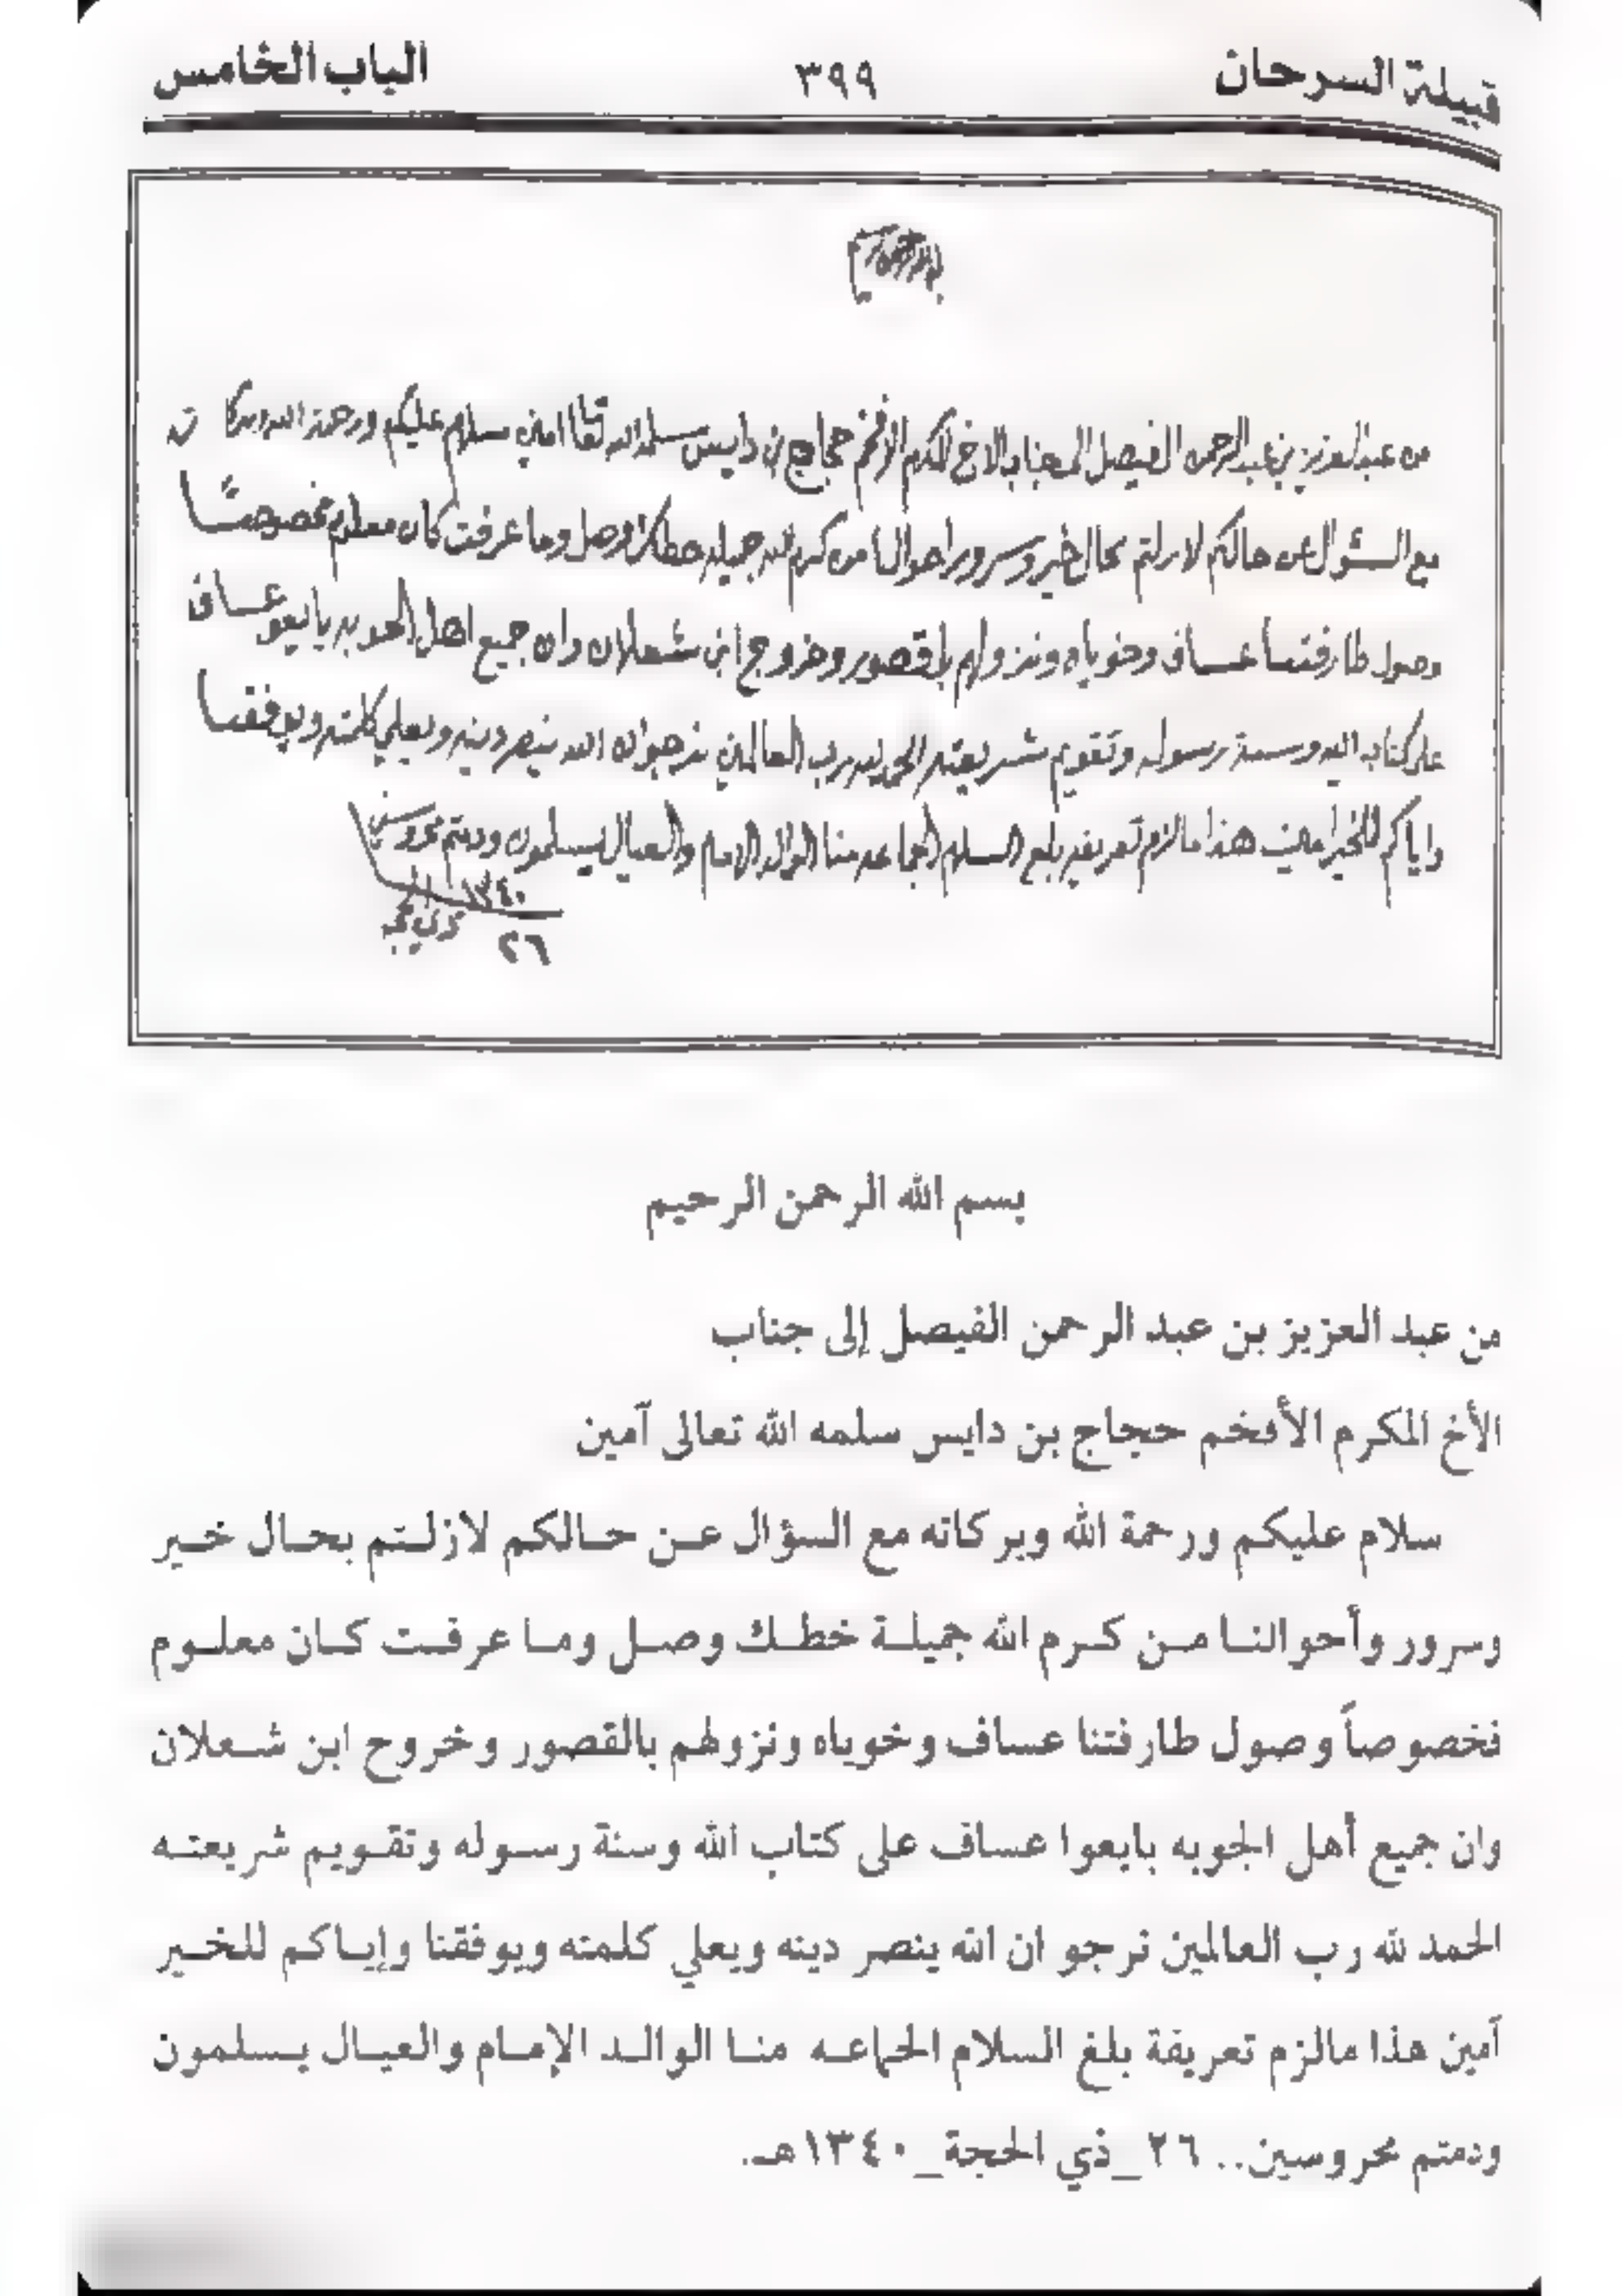 قبيلة السرحان
٣٩٩
الباب الخامس
من عبدالعزيز بن عبدالرحمن الفيصل الى جناب الاخ المكرم الافخم حجاج بن دايس سلمه الله تعالى امين سلام عليكم ورحمة الله وبركاته
مع السئوال عن حالكم لازلتم بحال خير وسرور احوالنا من كرم الله جميله خطك وصل وما عرفت كان معلوم مخصوصًا
وصول طارفتنا عساف وخوياه ونزولهم بلقصور وخروج ابن شعلان وان جميع اهل الجوبه بايعو عساف
على كتاب الله وسنة رسوله وتقويم شريعته الحمد لله رب العالمين نرجوان الله ينصر دينه ويعلي كلمته ويوفقنا
واياكم للخير امين هذا مالزم تعريفه بلغ السلام الجماعه منا الوالد الامام والعيال يسلمون ودمتم محروسين
١٣٤٠
٢٦
بسم الله الرحمن الرحيم
من عبد العزيز بن عبد الرحمن الفيصل إلى جناب
الأخ المكرم الأفخم حجاج بن دايس سلمه الله تعالى آمين
سلام عليكم ورحمة الله وبركاته مع السؤال عن حالكم لازلتم بحال خير
وسرور وأحوالنا من كرم الله جميلة خطك وصل وما عرفت كان معلوم
فخصوصاً وصول طارفتنا عساف وخوياه ونزولهم بالقصور وخروح ابن شعلان
وان جميع أهل الجوبه بايعوا عساف على كتاب الله وسنة رسوله وتقويم شريعته
الحمد لله رب العالمين نرجو ان الله ينصر دينه ويعلي كلمته ويوفقنا وإياكم للخير
آمين هذا مالزم تعريفة بلغ السلام الجماعه منا الوالد الإمام والعيال يسلمون
ودمتم محروسين.. ٢٦_ذي الحجة_١٣٤٠هـ.